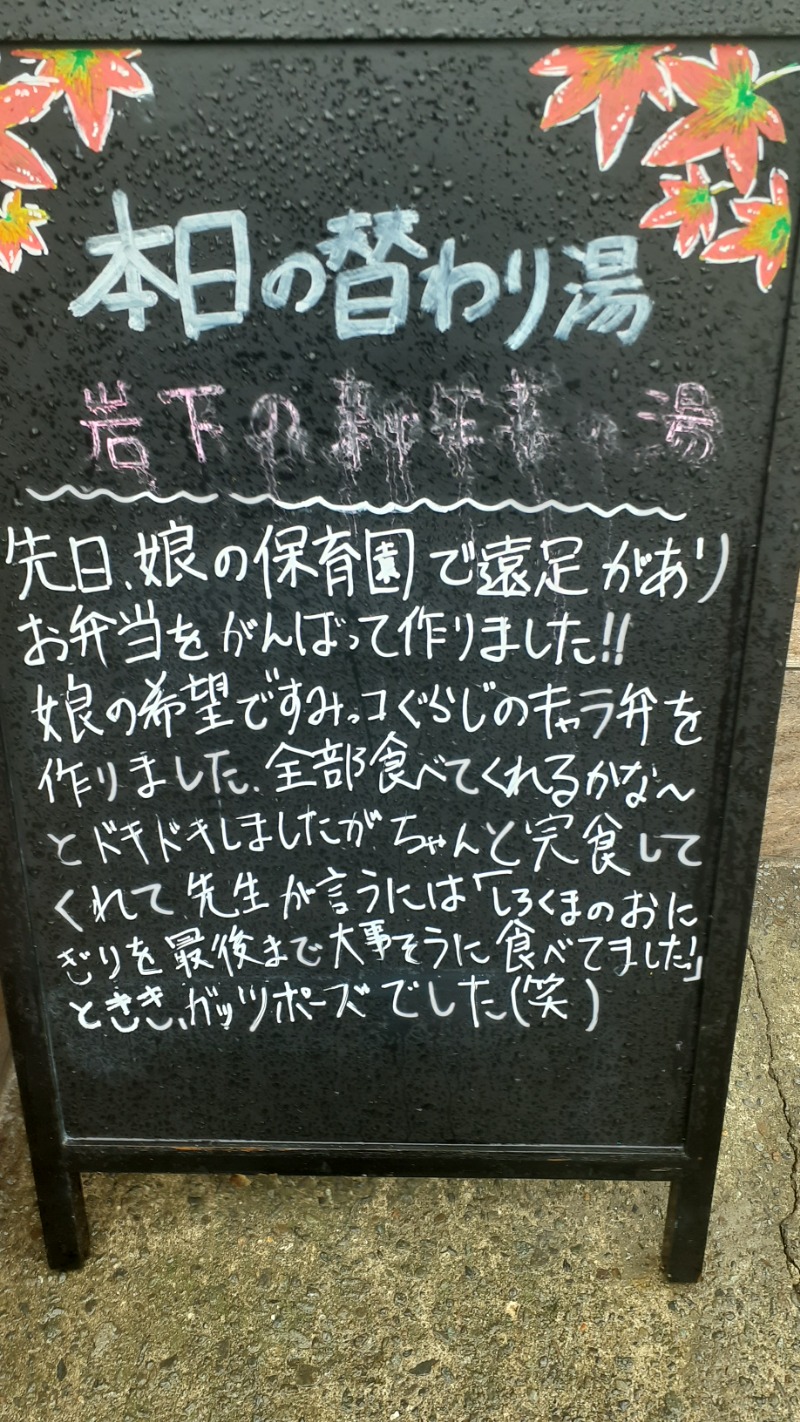 本日の替わり湯
岩下の新生姜の湯
先日、娘の保育園で遠足があり
お弁当をがんばって作りました!!
娘の希望ですみっコぐらしのキャラ弁を
作りました。全部食べてくれるかな〜
とドキドキしましたがちゃんと完食して
くれて、先生が言うには「しろくまのおに
ぎりを最後まで大事そうに食べてました!」
ときき、ガッツポーズでした(笑)